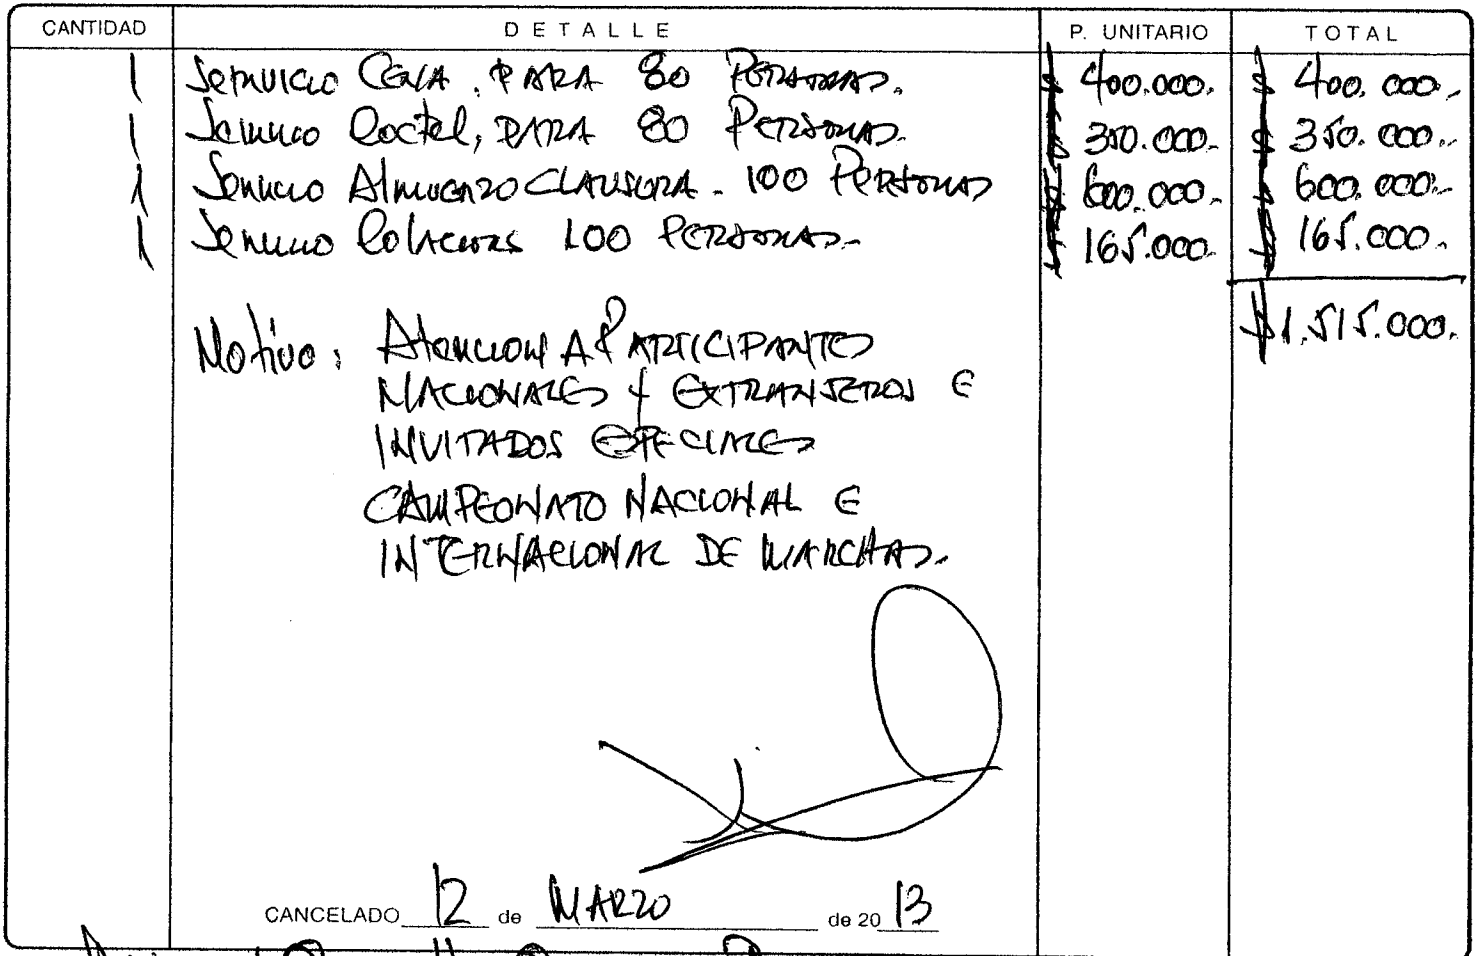 CANTIDAD DETALLE P. UNITARIO TOTAL
1 Servicio Cena, PARA 80 Personas. $ 400.000.- $ 400.000.-
1 Servicio Coctel, PARA 80 Personas. $ 350.000.- $ 350.000.-
1 Servicio Almuerzo CLAUSURA - 100 Personas $ 600.000.- $ 600.000.-
1 Servicio Colaciones 100 Personas.- $ 165.000.- $ 165.000.-
$1.515.000.
Motivo: Atencion A PARTICIPANTES
NACIONALES Y EXTRANJEROS E
INVITADOS ESPECIALES
CAMPEONATO NACIONAL E
INTERNACIONAL DE MARCHAS.
CANCELADO 12 de MARZO de 2013